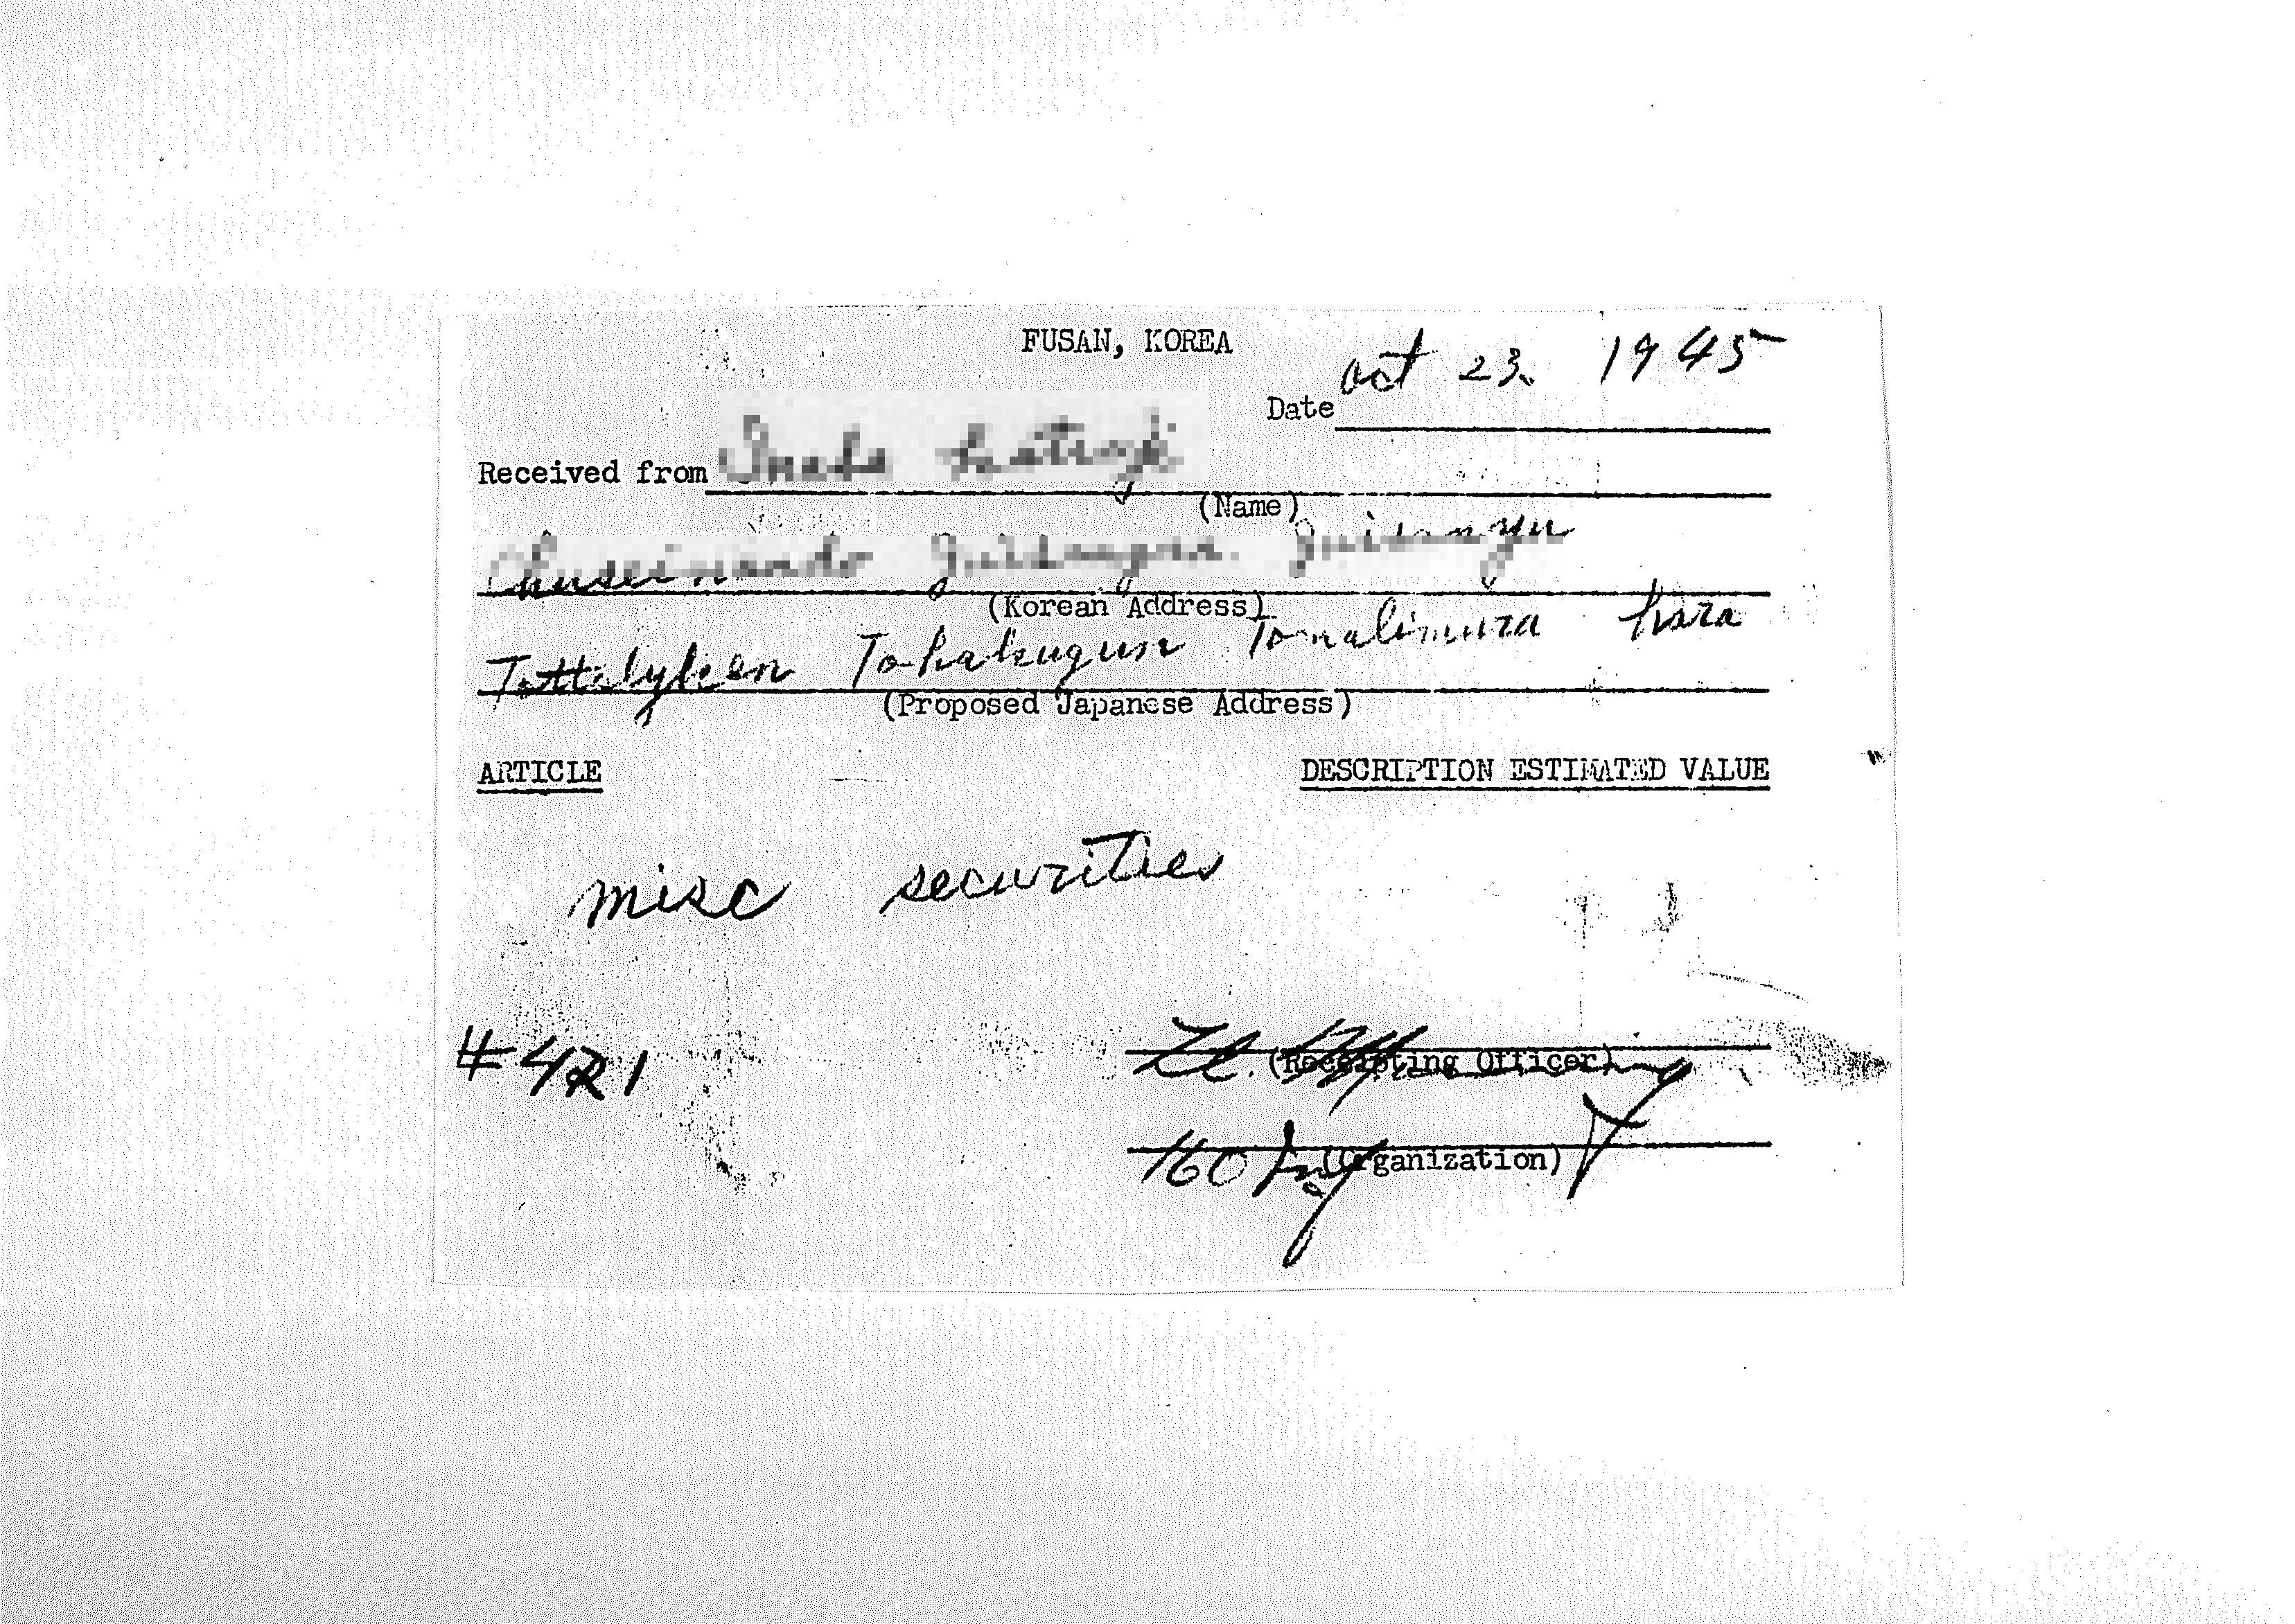 FUSAN, KOREA
Oct 23. 1945
Date
Received from
(Name)
(Korean Address)
Tottalyken Tohakugun Tomalimura hara
(Proposed Japanese Address)
ARTICLE DESCRIPTION ESTIMATED VALUE
misc securities
#421
(Receipting Officer)
160 Inf (Organization)